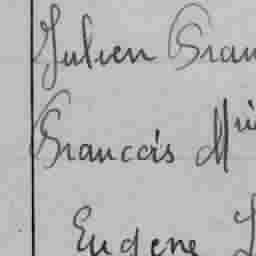 Julien Gran
Francois Mi
Eugene